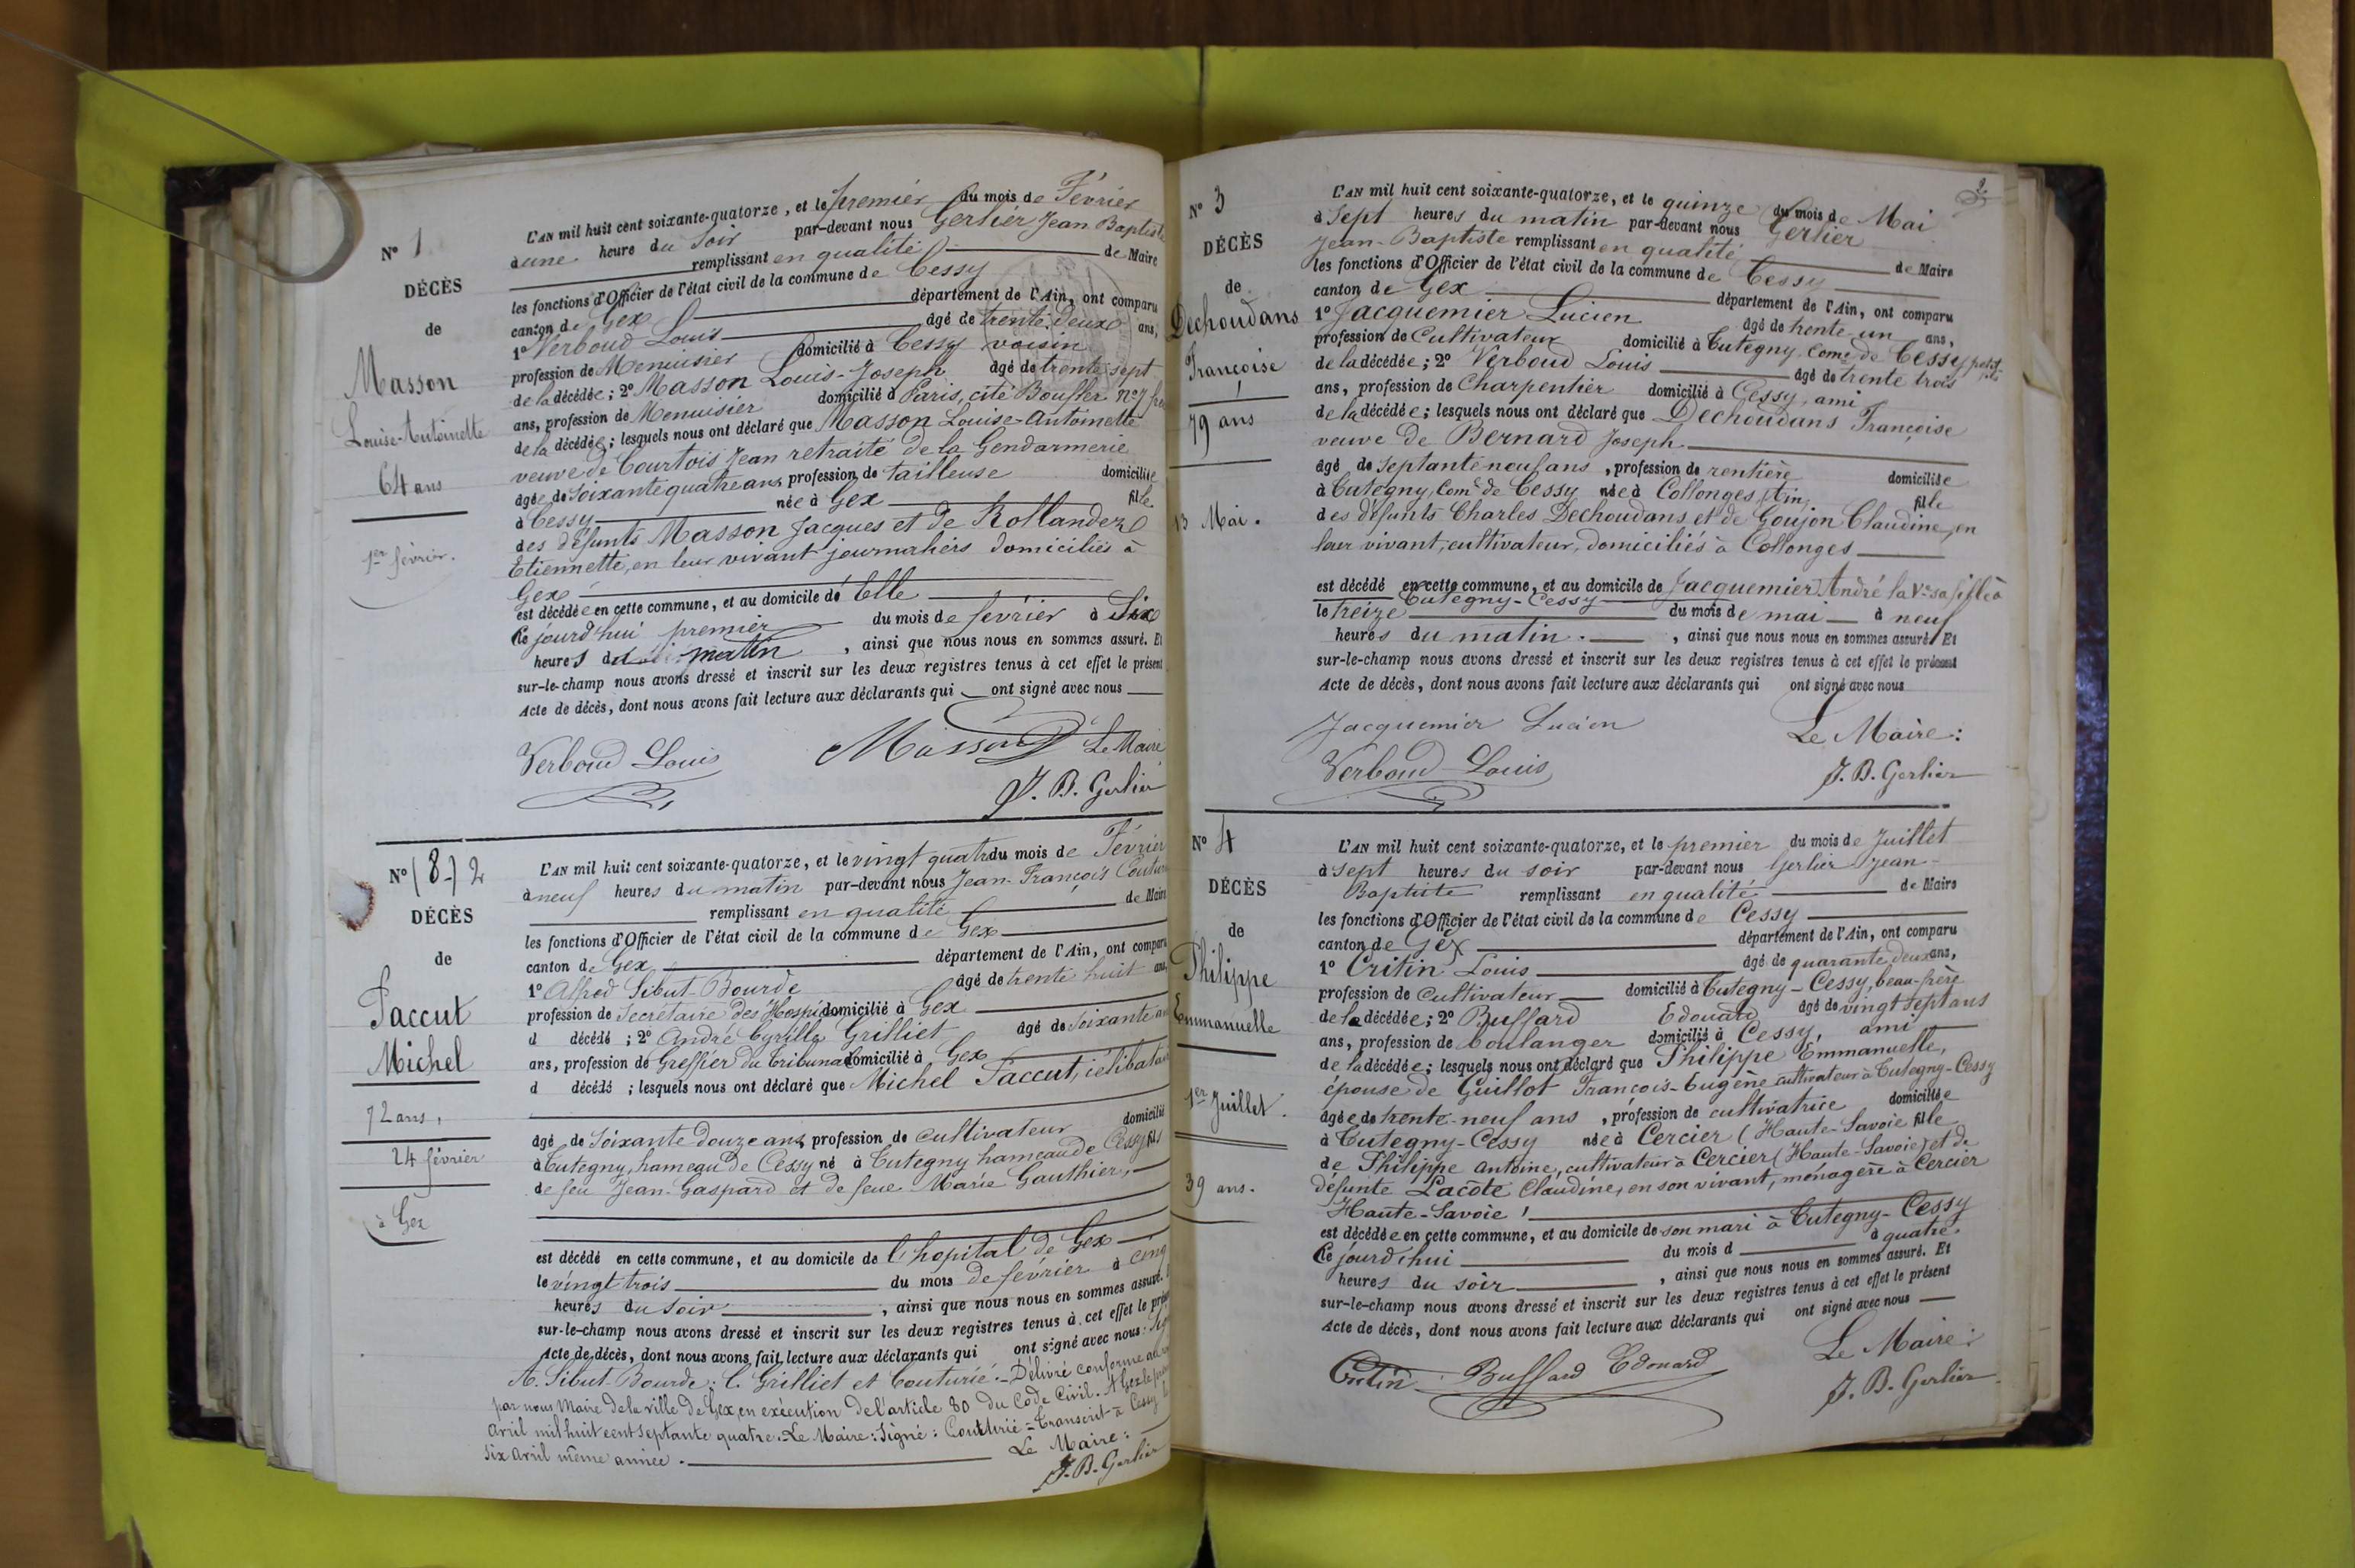 N° 1
DÉCÈS
de
Masson
Louise-Antoinette
64 ans
1er février.
L'AN mil huit cent soixante-quatorze, et le premier du mois de Février
à une heure du Soir par-devant nous Gerlier Jean Baptiste
remplissant en qualité de Maire
les fonctions d'Officier de l'état civil de la commune de Cessy
canton de Gex département de l'Ain, ont comparu
1° Verboud Louis âgé de trente-deux ans,
profession de Menuisier domicilié à Cessy voisin
de la décédée; 2° Masson Louis-Joseph âgé de trente sept
ans, profession de Menuisier domicilié à Paris, cité Boufler n°7
de la décédée; lesquels nous ont déclaré que Masson Louise-Antoinette
veuve de Courtois Jean retraité de la Gendarmerie
âgée de Soixante quatre ans, profession de tailleuse domiciliée
à Cessy née à Gex fille
des défunts Masson Jacques et de Rollandez
Etiennette, en leur vivant journaliers domiciliés à
Gex
est décédée en cette commune, et au domicile de Elle
Ce jourd'hui premier du mois de février à Six
heures du matin, ainsi que nous nous en sommes assuré. Et
sur-le-champ nous avons dressé et inscrit sur les deux registres tenus à cet effet le présent
Acte de décès, dont nous avons fait lecture aux déclarants qui ont signé avec nous
Verboud Louis Masson Le Maire
J. B. Gerlier
N° (8) 2
DÉCÈS
de
Paccut
Michel
72 ans,
24 février
à Gex
L'AN mil huit cent soixante-quatorze, et le vingt quatre du mois de Février
à neuf heures du matin par-devant nous Jean-François Couturié
remplissant en qualité de Maire
les fonctions d'Officier de l'état civil de la commune de Gex
canton de Gex département de l'Ain, ont comparu
1° Alfred Sibut-Bourde âgé de trente huit ans,
profession de Secrétaire des Hospices domicilié à Gex
d décédé; 2° André Cyrille Grilliet âgé de Soixante
ans, profession de Greffier du Tribunal domicilié à Gex
d décédé; lesquels nous ont déclaré que Michel Paccut, célibataire
âgé de Soixante douze ans, profession de cultivateur domicilié
à Tutegny, hameau de Cessy né à Tutegny hameau de Cessy fils
de feu Jean-Gaspard et de feue Marie Gauthier,
est décédé en cette commune, et au domicile de l'hopital de Gex
le vingt trois du mois de février à cinq
heures du soir, ainsi que nous nous en sommes assuré.
sur-le-champ nous avons dressé et inscrit sur les deux registres tenus à cet effet le présent
Acte de décès, dont nous avons fait lecture aux déclarants qui ont signé avec nous:
A. Sibut Bourde; C. Grilliet et Couturié. - Délivré conforme
par nous Maire de la ville de Gex, en exécution de l'article 80 du Code Civil. A Gex le
avril mil huit cent septante quatre. Le Maire: Signé: Couturié - Transcrit à Cessy le
six avril même année. Le Maire:
J. B. Gerlier
2
N° 3
DÉCÈS
de
Dechoudans
Françoise
79 ans
13 Mai.
L'AN mil huit cent soixante-quatorze, et le quinze du mois de Mai
à Sept heures du matin par-devant nous Gerlier
Jean-Baptiste remplissant en qualité de Maire
les fonctions d'Officier de l'état civil de la commune de Cessy
canton de Gex département de l'Ain, ont comparu
1° Jacquemier Lucien âgé de trente-un ans,
profession de Cultivateur domicilié à Tutegny, Come de Cessy petit-fils
de la décédée; 2° Verboud Louis âgé de trente trois
ans, profession de Charpentier domicilié à Cessy, ami
de la décédée; lesquels nous ont déclaré que Dechoudans Françoise
veuve de Bernard Joseph
âgé de Septante neuf ans, profession de rentière domiciliée
à Tutegny, Come de Cessy née à Collonges (Ain) fille
des défunts Charles Dechoudans et de Goujon Claudine, en
leur vivant, cultivateur, domiciliés à Collonges
est décédé en cette commune, et au domicile de Jacquemier André la Ve sa fille à
Tutegny-Cessy
le treize du mois de mai à neuf
heures du matin., ainsi que nous nous en sommes assuré. Et
sur-le-champ nous avons dressé et inscrit sur les deux registres tenus à cet effet le présent
Acte de décès, dont nous avons fait lecture aux déclarants qui ont signé avec nous
Jacquemier Lucien Le Maire:
Verboud Louis J. B. Gerlier
N° 4
DÉCÈS
de
Philippe
Emmanuelle
1er Juillet.
39 ans.
L'AN mil huit cent soixante-quatorze, et le premier du mois de Juillet
à sept heures du soir par-devant nous Gerlier Jean-
Baptiste remplissant en qualité de Maire
les fonctions d'Officier de l'état civil de la commune de Cessy
canton de Gex département de l'Ain, ont comparu
1° Critin Louis âgé de quarante deux ans,
profession de Cultivateur domicilié à Tutegny-Cessy, beau-frère
de la décédée; 2° Buffard Edouard âgé de vingt sept ans
ans, profession de boulanger domicilié à Cessy, ami
de la décédée; lesquels nous ont déclaré que Philippe Emmanuelle,
épouse de Guillot François-Eugène cultivateur à Tutegny-Cessy
âgée de trente-neuf ans, profession de cultivatrice domiciliée
à Tutegny-Cessy née à Cercier (Haute-Savoie fille
de Philippe Antoine, cultivateur à Cercier (Haute-Savoie) et de
défunte Lacôte Claudine, en son vivant, ménagère à Cercier
Haute-Savoie
est décédée en cette commune, et au domicile de son mari à Tutegny-Cessy
Ce jourd'hui du mois d à quatre
heures du soir, ainsi que nous nous en sommes assuré. Et
sur-le-champ nous avons dressé et inscrit sur les deux registres tenus à cet effet le présent
Acte de décès, dont nous avons fait lecture aux déclarants qui ont signé avec nous
Le Maire:
Critin Buffard Edouard J. B. Gerlier